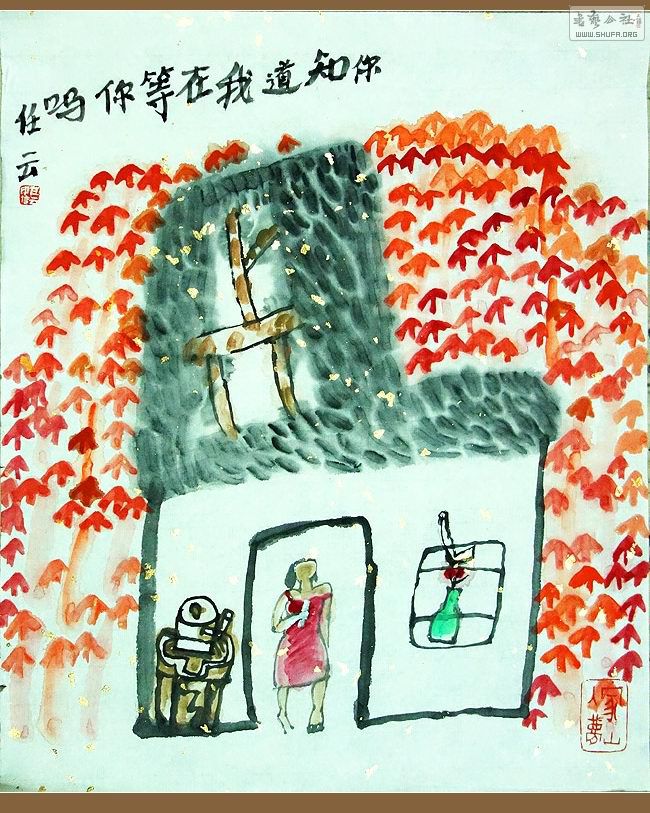 你知道我在等你吗
任云
書藝公社
WWW.SHUFA.ORG